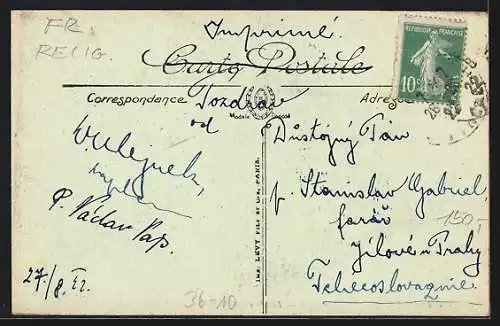 FR
RELIG
Imprimé.
Carte Postale
Correspondance
Adresse
Modèle Déposé
RÉPUBLIQUE FRANÇAISE
10
Pozdrav
od
P. Václav Pap.
27./8. 22.
36-10
Imp. LEVY FILS et Cie, PARIS.
Důstojný Pán
p. Stanislav Gabriel,
farář
150,-
Jílové u Prahy
Tchecoslovaquie